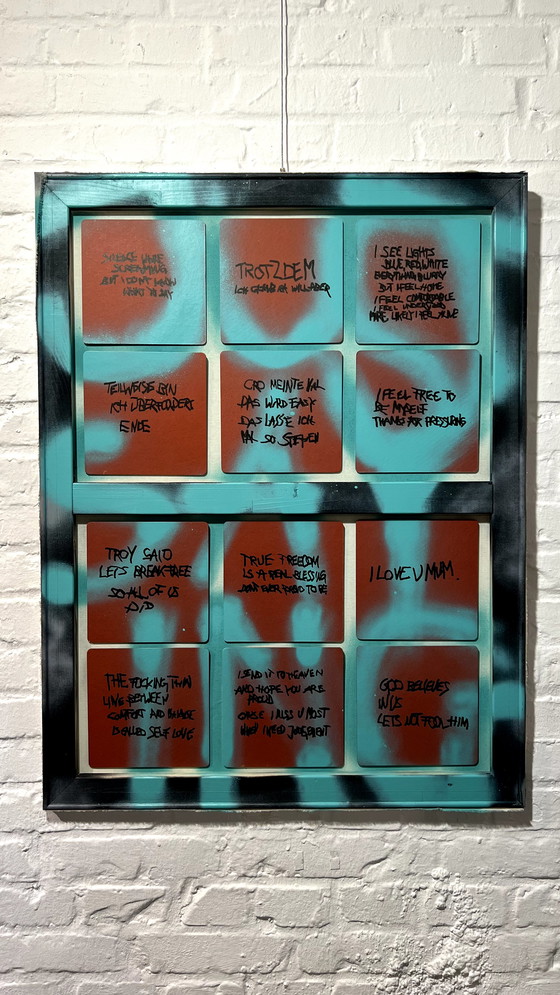 SCREAMING
BUT I DON'T KNOW
WHAT TO SAY
TROTZDEM
ICH
I SEE LIGHTS
BLUE, RED, WHITE
EERYTHING BLURRY
BUT I FEEL HOME
I FEEL COMFORTABLE
I FEEL UNDERSTAND
I FEEL ALIVE
TEILWEISE BIN
ICH ÜBERFORDERT
ENDE
CRO MEINTE MAL
DAS WIRD EASY
DAS LASSE ICH
MAL SO STEHEN
I FEEL FREE TO
BE MYSELF
THANKS FOR PRESSURING
TROY SAID
LETS BREAK FREE
SO ALL OF US
DID
TRUE FREEDOM
IS A REAL BLESSING
DONT EVER TO BE
I LOVE U MUM.
THE FUCKING THIN
LINE BETWEEN
COMFORT AND
IS CALLED SELF LOVE
I SEND IT TO HEAVEN
AND HOPE YOU ARE
PROUD
CAUSE I MISS U MOST
WHEN I NEED JUDGEMENT
GOD BELIEVES
IN US
LETS NOT FOOL HIM